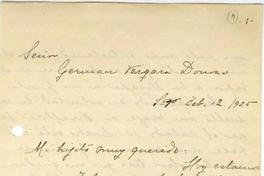 (1) .-
Señor
German Vergara Donoso
Feb. 12 1925
Mi hijito muy querido:
Hoy estamos